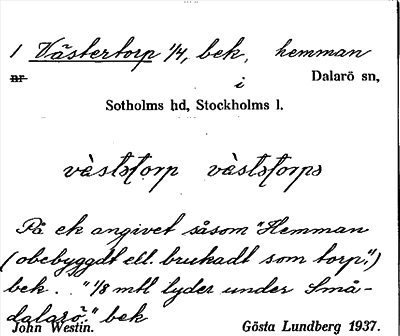 1 Västertorp 1/4, bek, hemman
nr i Dalarö sn,
Sotholms hd, Stockholms l.
vàstətorp vàstətorpə
På ek angivet såsom "Hemman
(obebyggdt ell. brukadt som torp")
bek. . "1/8 mtl lyder under Små-
dalarö." bek
John Westin. Gösta Lundberg 1937.